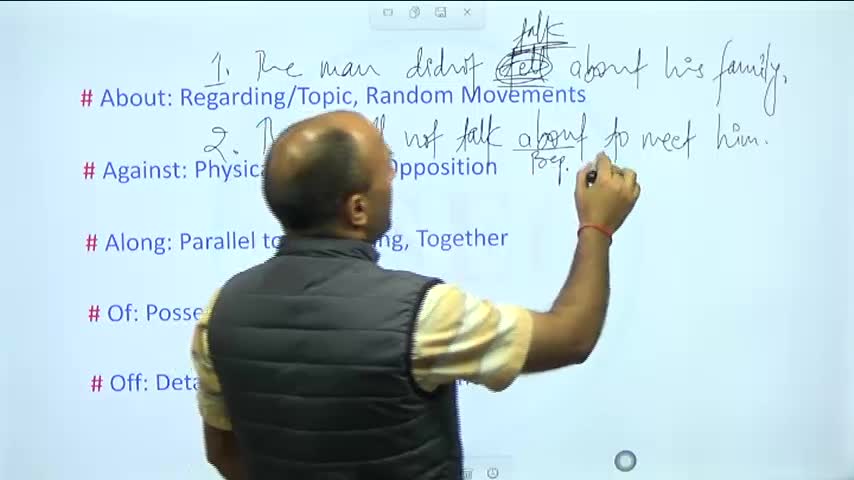 talk
1. The man didnot tell about his family.
# About: Regarding/Topic, Random Movements
2. not talk about to meet him.
Prep.
# Against: Physica Opposition
# Along: Parallel to ng, Together
# Of: Posse
# Off: Deta